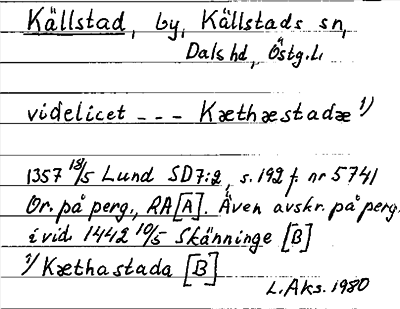 Källstad, by, Källstads sn,
Dals hd, Östg.l.
videlicet --- Kæthæstadæ 1)
1357 18/5 Lund SD7:2, s. 192 f. nr 5741
Or. på perg., RA [A]. Även avskr. på perg.
i vid. 1442 10/5 Skänninge [B]
1) Kæthastada [B]
L. Aks. 1980